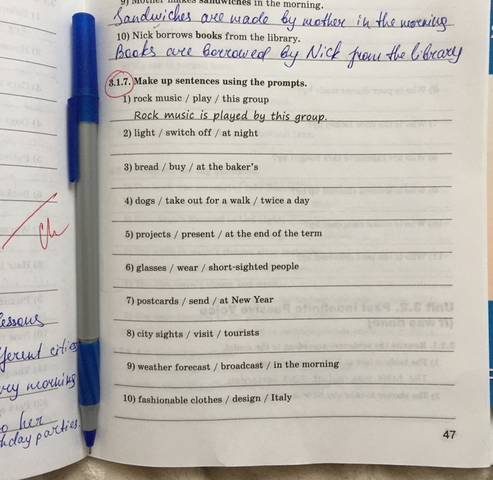 9) Mother makes sandwiches in the morning.
Sandwiches are made by mother in the morning
10) Nick borrows books from the library.
Books are borrowed by Nick from the library
3.1.7. Make up sentences using the prompts.
1) rock music / play / this group
Rock music is played by this group.
2) light / switch off / at night
3) bread / buy / at the baker's
4) dogs / take out for a walk / twice a day
5) projects / present / at the end of the term
6) glasses / wear / short-sighted people
7) postcards / send / at New Year
8) city sights / visit / tourists
9) weather forecast / broadcast / in the morning
10) fashionable clothes / design / Italy
47
Ch
lessons
fferent cities
ery morning
o her
hday parties.